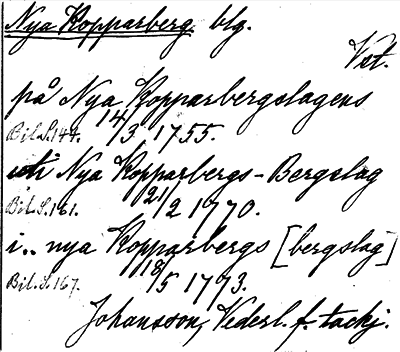 Nya Kopparberg. blg.
Vst.
på Nya Kopparbergslagens
Bil.S.144. 14/3 1755.
uti Nya Kopparbergs-Bergslag
Bil.S.161. 21/2 1770.
i.. nya Kopparbergs [bergslag]
Bil.S.167. 18/5 1773.
Johansson, Vederl. f. tackj.